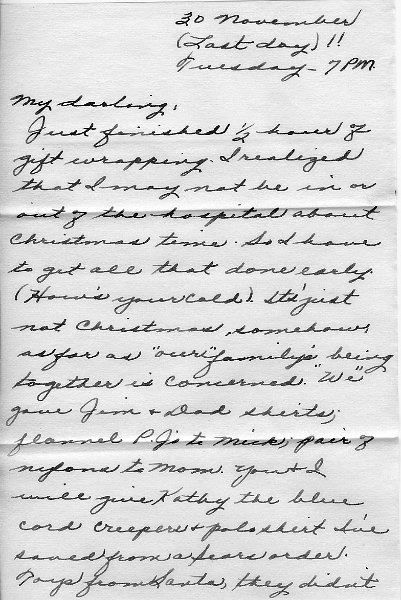 30 November
(Last day)!!
Tuesday - 7 PM.
My darling,
Just finished 1/2 hour of
gift wrapping. I realized
that I may not be in or
out of the hospital about
Christmas time. So I have
to get all that done early.
(How's your cold). It's just
not Christmas, somehow,
as far as "our" family's being
together is concerned. "We"
gave Jim & Dad shirts;
flannel P.J's to Mick; pair of
nylons to Mom. You & I
will give Kathy the blue
cord creepers & polo shirt I've
saved from a Sears order.
Toys from Santa, they didn't